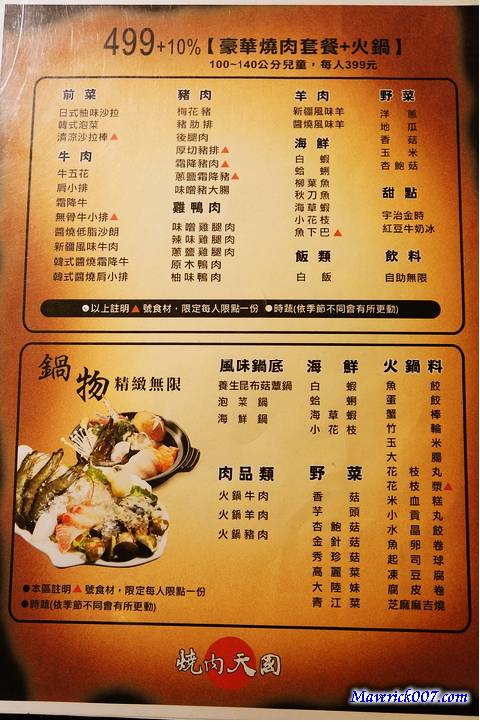 499+10%【豪華燒肉套餐+火鍋】
100~140公分兒童，每人399元
前菜
日式柚味沙拉
韓式泡菜
清涼沙拉棒▲
牛肉
牛五花
肩小排
霜降牛
無骨牛小排▲
醬燒低脂沙朗
新疆風味牛肉
韓式醬燒霜降牛
韓式醬燒肩小排
豬肉
梅花豬
豬肋排
後腿肉
厚切豬排▲
霜降豬肉▲
蔥鹽霜降豬▲
味噌豬大腸
雞鴨肉
味噌雞腿肉
辣味雞腿肉
蔥鹽雞腿肉
原木鴨肉
柚味鴨肉
羊肉
新疆風味羊
醬燒風味羊
海鮮
白蝦
蛤蜊
柳葉魚
秋刀魚
海草蝦
小花枝
魚下巴▲
飯類
白飯
野菜
洋蔥
地瓜
香菇
玉米
杏鮑菇
甜點
宇治金時
紅豆牛奶冰
飲料
自助無限
以上註明▲號食材，限定每人限點一份 ●時蔬(依季節不同會有所更動)
鍋物 精緻無限
風味鍋底
養生昆布菇蕈鍋
泡菜鍋
海鮮鍋
肉品類
火鍋牛肉
火鍋羊肉
火鍋豬肉
海鮮
白蝦
蛤蜊
海草蝦
小花枝
野菜
香菇
芋頭
杏鮑菇
金針菇
秀珍菇
高麗菜
大陸妹
青江菜
火鍋料
魚餃
蛋餃
蟹棒
竹輪
玉米
大腸
花枝丸
花枝漿▲
米血糕
小貢丸
水晶餃
魚卵卷
起司球
凍豆腐
腐皮卷
芝麻麻吉燒
●本區註明▲號食材，限定每人限點一份
●時蔬(依季節不同會有所更動)
燒肉天國
Maverick007.com